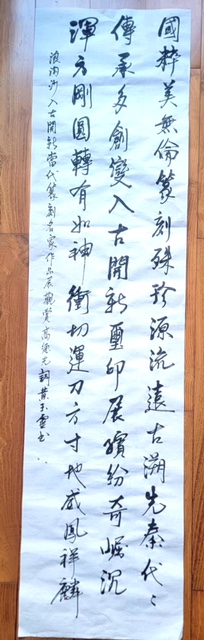 國粹美無倫篆刻殊珍源流遠古溯先秦代〻
傳承多創變入古開新璽印展繽紛奇崛沉
渾方剛圓轉有如神衝切運刀方寸地威鳳祥麟
浪淘沙入古開新當代篆刻名家作品展觀賞高德光詞黄玉雲书